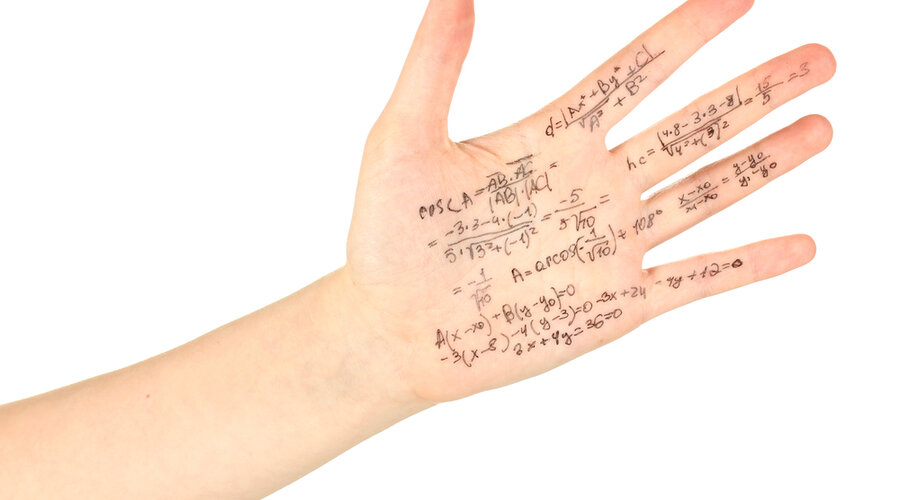 d=|Ax* + By* + C|/√A² + B²
hc = |4·8 - 3·3-8|/√4²+(3)² = 15/5 = 3
x-x0/x1-x0 = y-y0/y1-y0
cos∠A = AB·AC/|AB|·|AC| =
= -3·3-4·(-1)/5·√3²+(-1)² = -5/5√10 =
= -1/√10 A=arccos(-1/√10) + 108°
A(x-x0)+B(y-y0)=0
-3(x-8)-4(y-3)=0 -3x+24 -4y+12=0
3x+4y=36=0